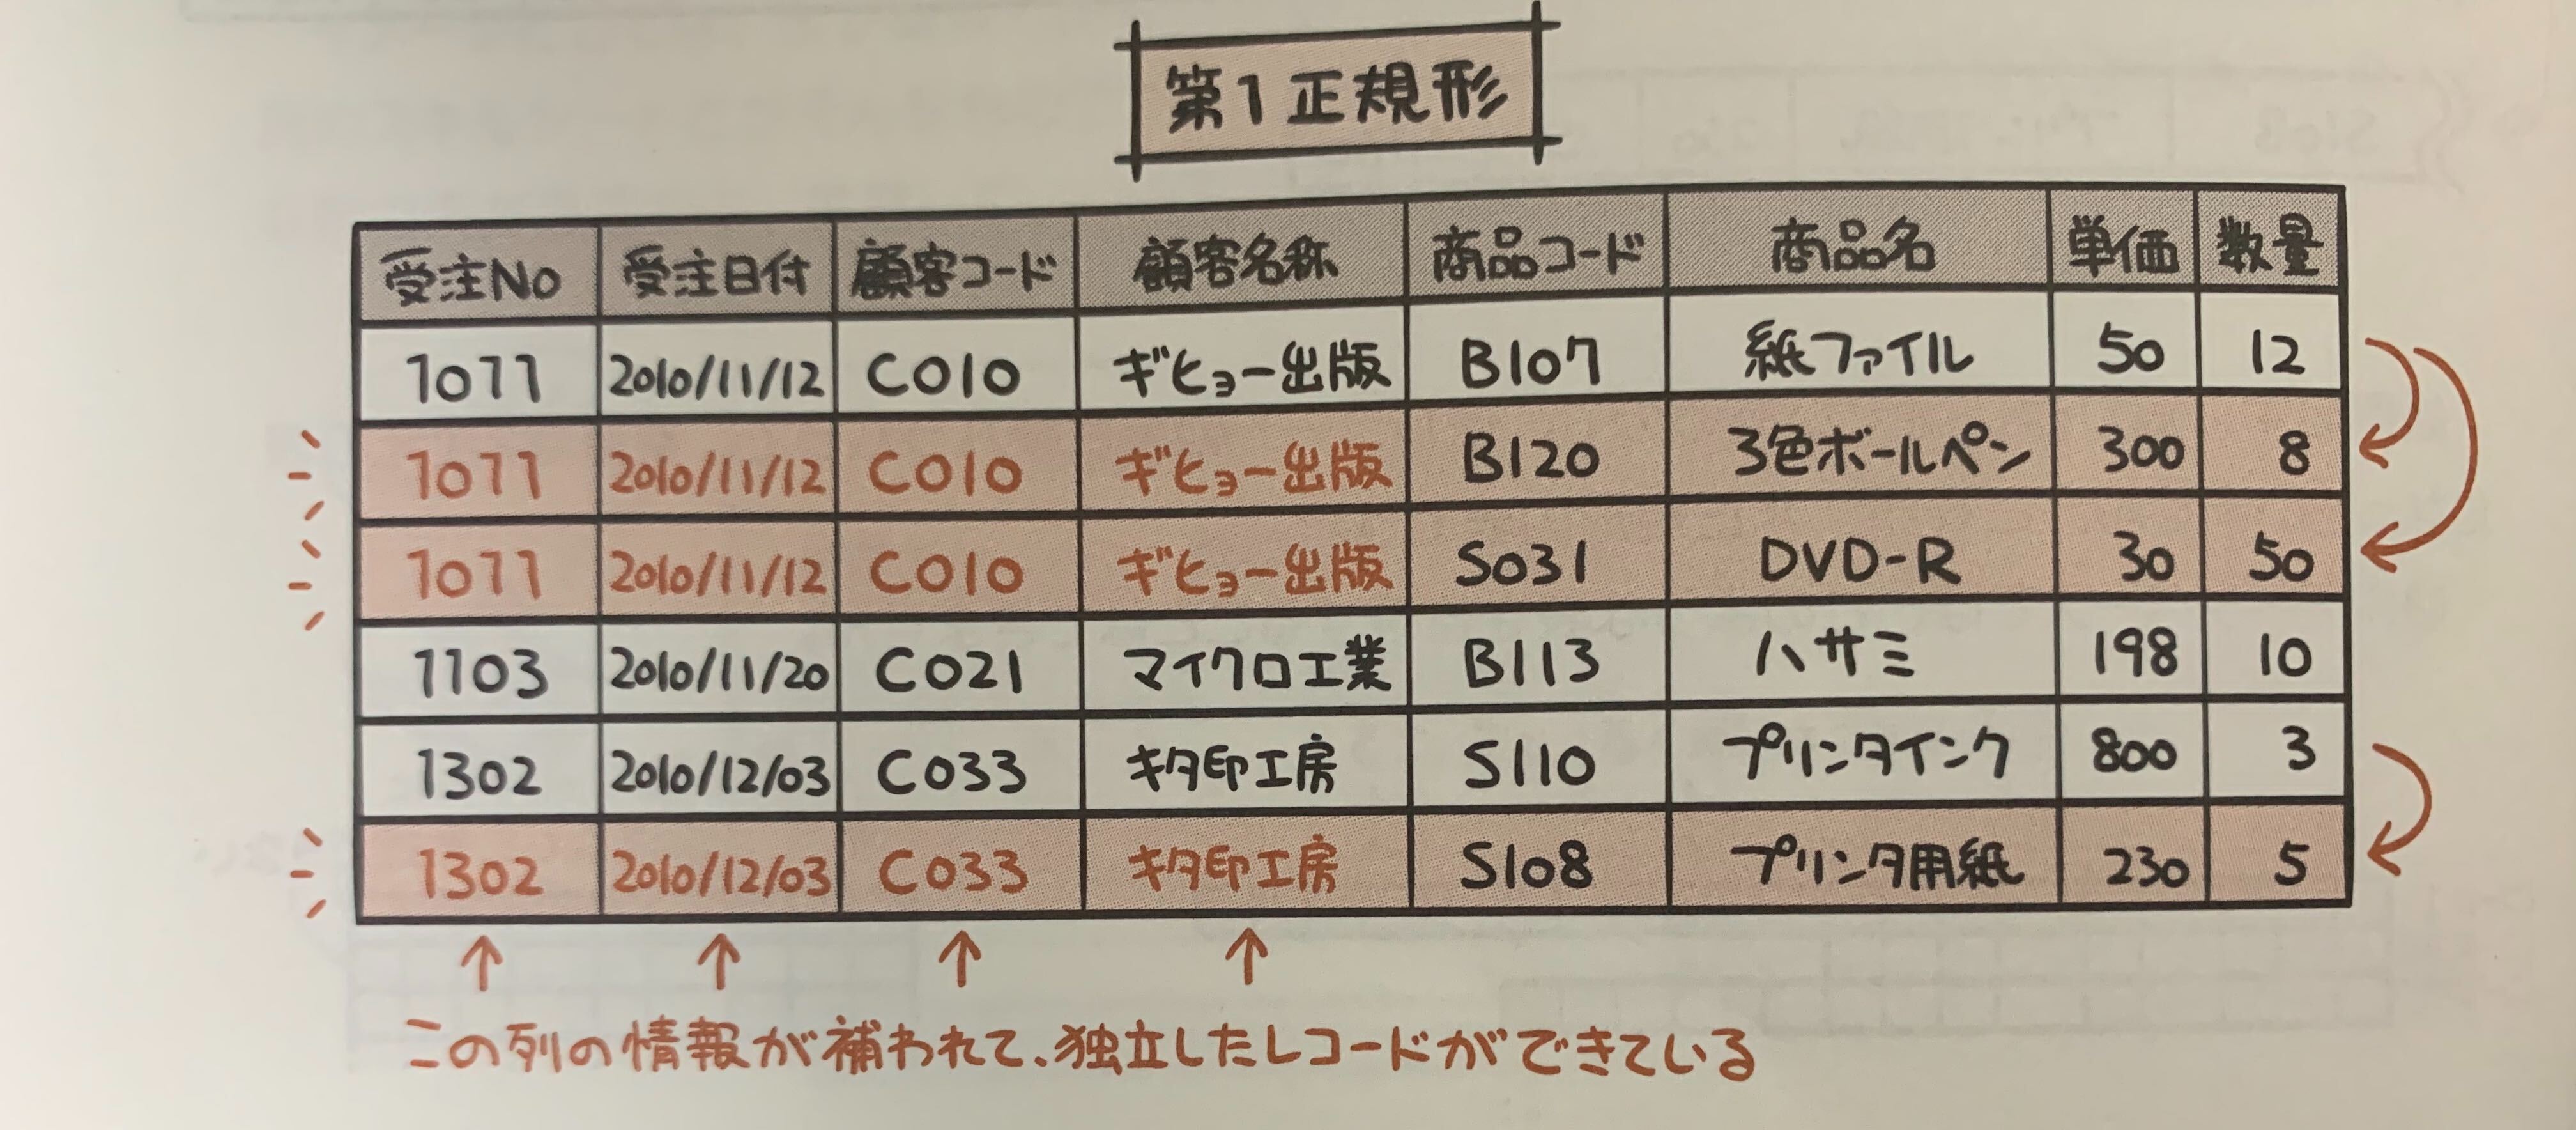 第1正規形
受注No 受注日付 顧客コード 顧客名称 商品コード 商品名 単価 数量
1077 2010/11/12 C010 ギヒョー出版 B107 紙ファイル 50 12
1077 2010/11/12 C010 ギヒョー出版 B120 3色ボールペン 300 8
1077 2010/11/12 C010 ギヒョー出版 S031 DVD-R 30 50
1103 2010/11/20 C021 マイクロ工業 B113 ハサミ 198 10
1302 2010/12/03 C033 キタ印工房 S110 プリンタインク 800 3
1302 2010/12/03 C033 キタ印工房 S108 プリンタ用紙 230 5
この列の情報が補われて、独立したレコードができている